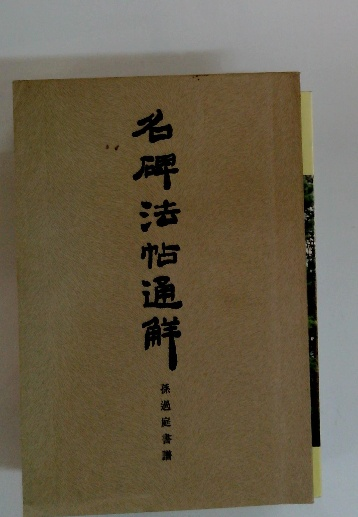 名碑法帖通解
孫過庭書譜